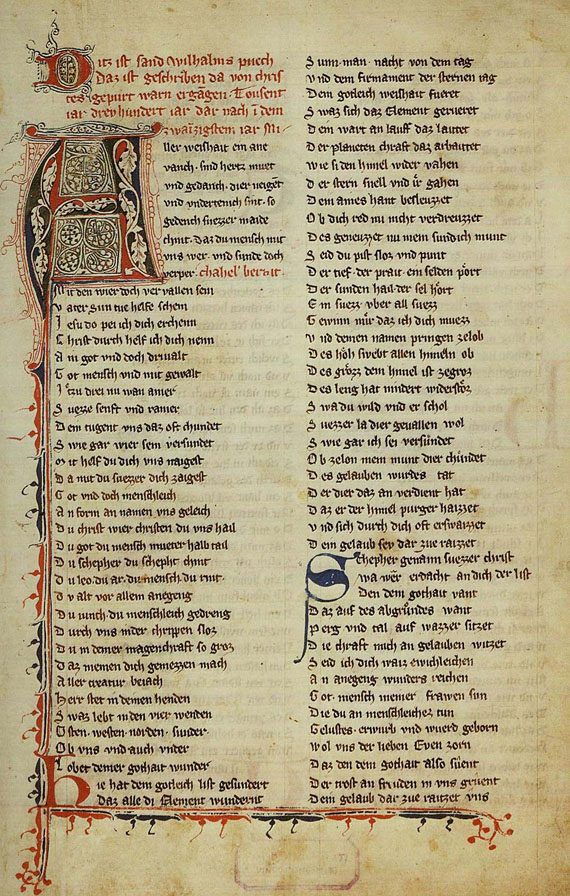 Ditz ist sand wilhalms puech
Daz ist geschriben da von chris
tes gepurt warn ergangen Tousent
iar drevhundert iar dar nach i dem
zwaizigstem iar
Aller weishait ein ane
vanch sind hertz muet
vnd gedanch dier neiget
vnd vndertenich sint so
gedench suezzer maide
chint daz du mensch mit
vns wer vnd sunde doch
verper
Mit den wier doch ver vallen sein
Vater sun tue helfe schein
Iesu do pei ich dich erchenn
Christ durch helf ich dich nenn
Ain got vnd doch driualt
Got mensch vnd mit gewalt
drei nu wan ainer
Suezze senft vnd rainer
Dein tugent vns daz oft chundet
Swie gar wier sein versundet
Mit helf du dich vns naigest
Da mit du suezzer dich zaigest
Got vnd doch menschleich
An form an namen vns geleich
Du christ wier christen du vns hail
Du got du mensch mueter halb tail
Du schepher du schepht chint
Du leo du ar du mensch du rint
Du alt vor allem anegeng
Du iunch du menschleich gedreng
Durch vns in der chrippen sloz
Du in deiner magenchraft so groz
Daz niemen dich gemezzen mach
Aller creatur beiach
Herr stet in deinen henden
Swaz lebt in den vier wenden
Osten westen norden sunden
Ob vns vnd auch vnder
Lobet deiner gothait wunder
Hie hat dein gotleich list gesundert
Daz alle di Element wundernt
Sunn man nacht von dem tag
Vnd dem firmament der sternen iag
Dem gotleich weishait fueret
Swaz sich daz Element gerueret
Dem wart an lauff daz lautet
Der planeten chraft daz arbaitet
Wie si den himel wider vahen
Der stern snell vnd ir gahen
Dem ames hant besleuzzet
Ob dich red nu nicht verdreuzzet
Des geneuzzet nu mein sundich munt
Seid du pist sloz vnd punt
Der tief der prait ein selden port
Der sunden hail der sel hort
Ein suezz vber all suezz
Gewinn mir daz ich dich muezz
Vnd deinen namen pringen ze lob
Des hoh swebt allen himeln ob
Des grozz dem himel ist ze groz
Des leng hat nindert widerstoz
Swa du wild vnd er schol
Suezzer la dier geuallen wol
Swie gar ich sei versundet
Ob ze lon mein munt dier chundet
Des gelauben wurdes tat
Der dier daz an verdient hat
Daz er der himel purger haizzet
Vnd sich durch dich oft erswaizzet
Dein gelaub sey dar zue raizzet
Schepher genant suezzer christ
Swa wer erdacht an dich der list
Den dein gothait vant
Daz auf des abgrundes want
Perg vnd tal auf wazzer sitzet
Die chraft mich an gelauben witzet
Seid ich dich waiz ewichleichen
An anegeng wunders reichen
Got mensch meiner frawen sun
Die du an menschleichez tun
Gelustes erwurb vnd wuerd geborn
Wol vns der lieben Even zorn
Daz den dein gothait also suent
Der trost an freuden in vns gruent
Dein gelaub dar zue raitzet vns